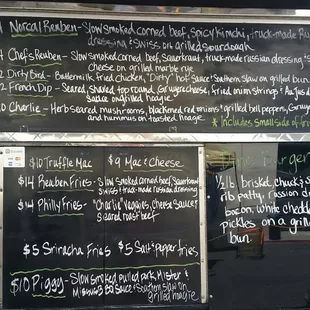 Norcal Reuben - Slow smoked corned beef, spicy kimchi, truck-made Ru
dressing + Swiss on grilled sourdough
Chef's Reuben - Slow smoked corned beef, Sauerkraut, truck-made russian dressing
cheese on grilled marble rye
2 Dirty Bird - Buttermilk fried chicken, "Dirty" hot sauce + Southern slaw on grilled bun
2 French Dip - Seared, shaved top round, Gruyere cheese, fried onion strings + Au jus
Sauce on grilled hoagie
10 Charlie - Herb seared mushrooms, blackened red onions + grilled bell peppers, Gruye
and hummus on toasted hoagie
* Includes small side of fr
$10 Truffle Mac $9 Mac + Cheese
$14 Reuben Fries - Slow smoked corned beef, Sauerkraut
Swiss + truck-made russian dressing
$14 Philly Fries - "Charlie" Veggies, Cheese Sauce
Seared roast beef
$5 Sriracha Fries $5 Salt + pepper fries
$10 Piggy - Slow smoked pulled pork, Mister +
BBQ Sauce + Southern slaw on
grilled hoagie
Burger
1/2 lb. brisket, chuck, + s
rib patty, russian d
bacon, white chedda
pickles on a grill
bun